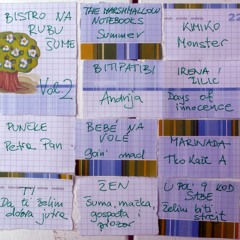 BISTRO NA
RUBU
ŠUME
Vol. 2
THE MARSHMALLOW
NOTEBOOKS
Summer
KIMIKO
Monster
22
BITIPATIBI
Andrija
IRENA
ŽILIĆ
Days of
innocence
PUNČKE
Petra Pan
BEBÉ NA
VOLÉ
goin' mad
MARINADA
Tko kaže A
TI
Da ti želim
dobro jutro
ŽEN
Šuma, mačka,
gospođa i
prozor
U POL 9 KOD
SABE
Želim biti
strejt